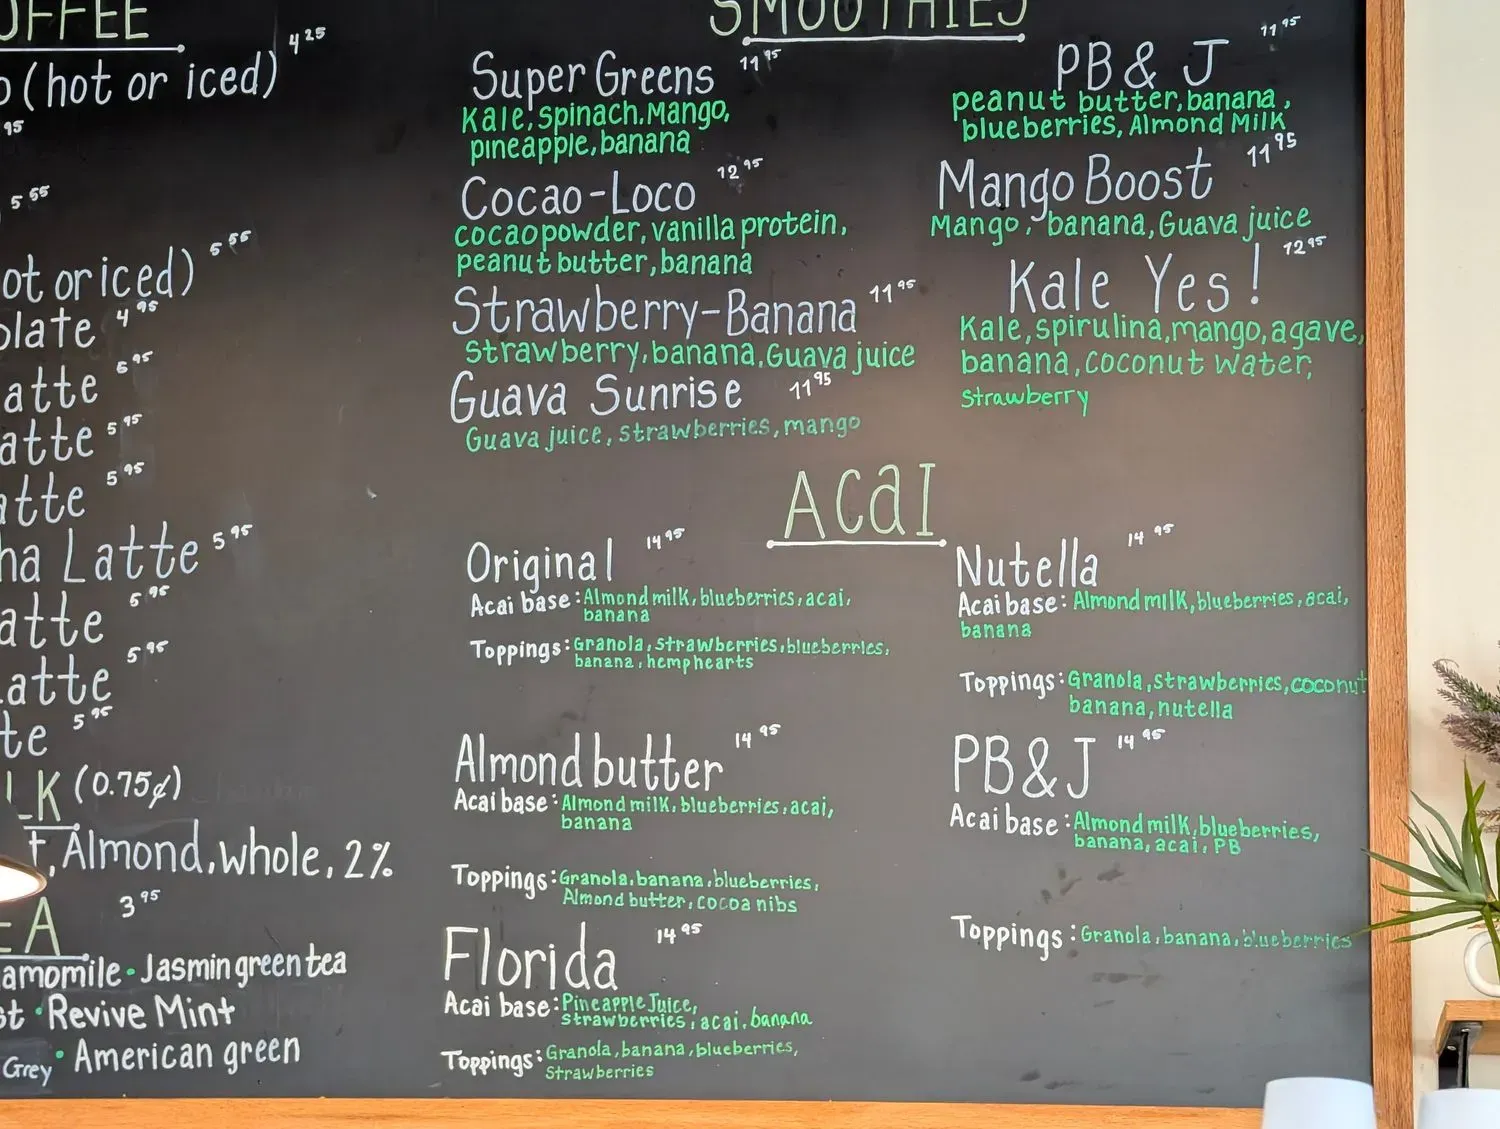 OFFEE
(hot or iced) 4 25
95
5 55
ot or iced) 5 55
olate 4 95
atte 5 95
atte 5 95
atte 5 95
ha Latte 5 95
atte 5 95
Latte 5 95
te 5 95
LK (0.75¢)
t, Almond, whole, 2%
EA 3 95
amomile · Jasmin green tea
st · Revive Mint
Grey · American green
SMOOTHIES
Super Greens 11 95
Kale, spinach. Mango,
pineapple, banana
Cocao-Loco 12 95
cocao powder, vanilla protein,
peanut butter, banana
Strawberry-Banana 11 95
Strawberry, banana, Guava juice
Guava Sunrise 11 95
Guava juice, strawberries, mango
PB & J 11 95
peanut butter, banana,
blueberries, Almond Milk
Mango Boost 11 95
Mango, banana, Guava juice
Kale Yes! 12 95
Kale, spirulina, mango, agave,
banana, coconut water,
Strawberry
ACaI
Original 14 95
Acai base: Almond milk, blueberries, acai,
banana
Toppings: Granola, strawberries, blueberries,
banana, hemp hearts
Almond butter 14 95
Acai base: Almond milk, blueberries, acai,
banana
Toppings: Granola, banana, blueberries,
Almond butter, cocoa nibs
Florida 14 95
Acai base: Pineapple Juice,
strawberries, acai, banana
Toppings: Granola, banana, blueberries,
Strawberries
Nutella 14 95
Acai base: Almond milk, blueberries, acai,
banana
Toppings: Granola, strawberries, coconut
banana, nutella
PB&J 14 95
Acai base: Almond milk, blueberries,
banana, acai, PB
Toppings: Granola, banana, blueberries